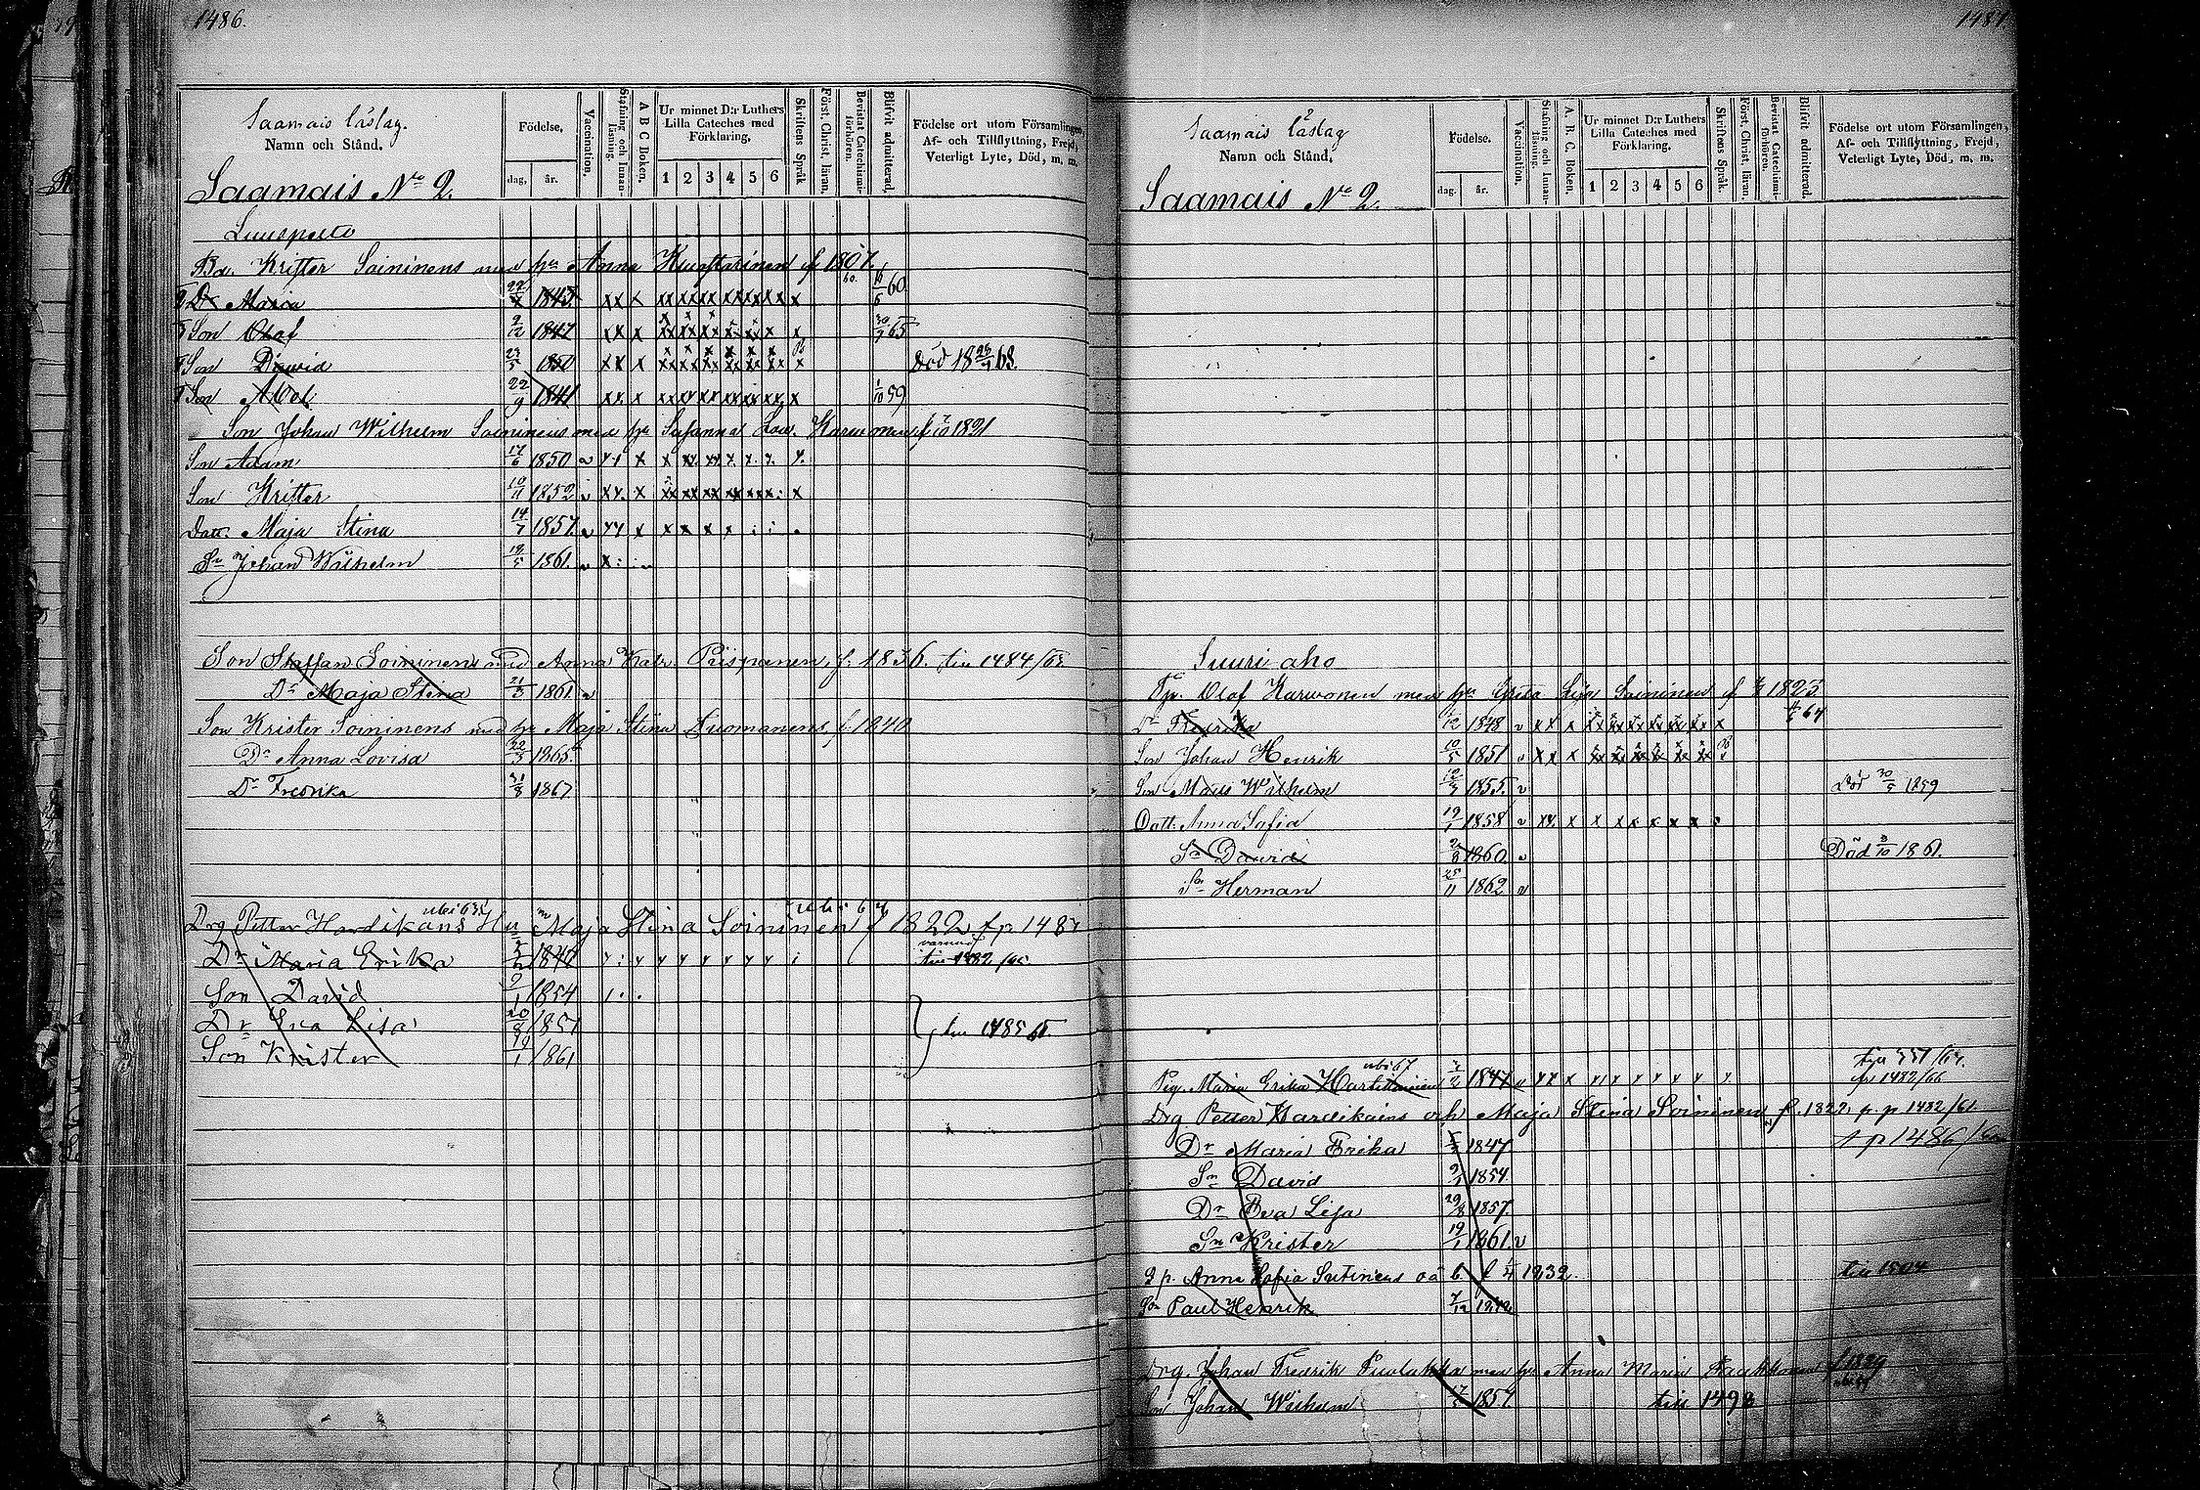 1486.
Saamais läslag.
Namn och Stånd.
Födelse,
dag, år.
Vaccination,
Stafning och Innanläsning.
A B C Boken.
Ur minnet D:r Luthers Lilla Cateches med Förklaring,
1 2 3 4 5 6
Skriftens Språk
Först. Christ. läran.
Bevistat Catechismiförhören.
Blifvit admitterad,
Födelse ort utom Församlingen,
Af- och Tillflyttning, Frejd,
Veterligt Lyte, Död, m. m.
Saamais No 2.
Krister Soininens med hu Anna f 1807
Dr Maria 1843 60
Son Olof 2/12 1847 65
Son David 1850 Död 18 68.
Son Abel 22/9 1841 1/10 59
Son Johan Wilhelm Soininens med hu Susanna Lov. Karvonen f 1821
Son Adam 17/6 1850
Son Krister 10/11 1852
Dott. Maja Stina 14/7 1857
Sn Johan Wilhelm 1861.
Son Staffan Soininens med Anna Katr. Piispanen, f. 1836. till 1484/65
Dr Maja Stina 21/3 1861
Son Krister Soininens med hu Maja Stina Luomanens, f. 1840
Dr Anna Lovisa 1865
Dr Fredrika 31/8 1867
Drg Petter Hardikans Hu Maja Stina Soininen f 1822 f p 1487
Dr Maria Erika 1847 till 1482/65
Son David 9/1 1854
Dr Eva Lisa 20/8 1857
Son Krister 19/1 1861
till 1485 65
1487
Saamais läslag
Namn och Stånd,
Födelse.
dag. år.
Vaccination,
Stafning och Innanläsning.
A. B. C. Boken.
Ur minnet D:r Luthers Lilla Cateches med Förklaring,
1 2 3 4 5 6
Skriftens Språk.
Först. Christ. läran.
Bevistat Catechismiförhören.
Blifvit admitterad.
Födelse ort utom Församlingen,
Af- och Tillflyttning, Frejd,
Veterligt Lyte, Död, m. m.
Saamais No 2.
Suuri aho
Olof Karvonen med hu Greta Lisa Soininen f 1823
Dr Fredrika 1848 64
Son Johan Henrik 10/5 1851
Son Mats Wilhelm 1855. Död 30/5 1859
Dott. Anna Sofia 19/1 1858
Sn David 1860 Död 3/10 1861.
Son Herman 25/11 1862
Pig. Maria Erika Hartikainen 1847
fr 1482/66
Drg Petter Hardikains och Maja Stina Soininen f. 1822, fr. p 1482/61
Dr Maria Erika 1847
f p 1486
Sn David 9/1 1854
Dr Eva Lisa 20/8 1857
Sn Krister 19/1 1861
Anna Sofia Sutinens oä b. f 1832. till 1504
Son Paul Henrik 7/12
Drg. Johan Fredrik Puolakka med hu Anna Maria f 1829
Son Johan Wilhelm 1859 till 1498